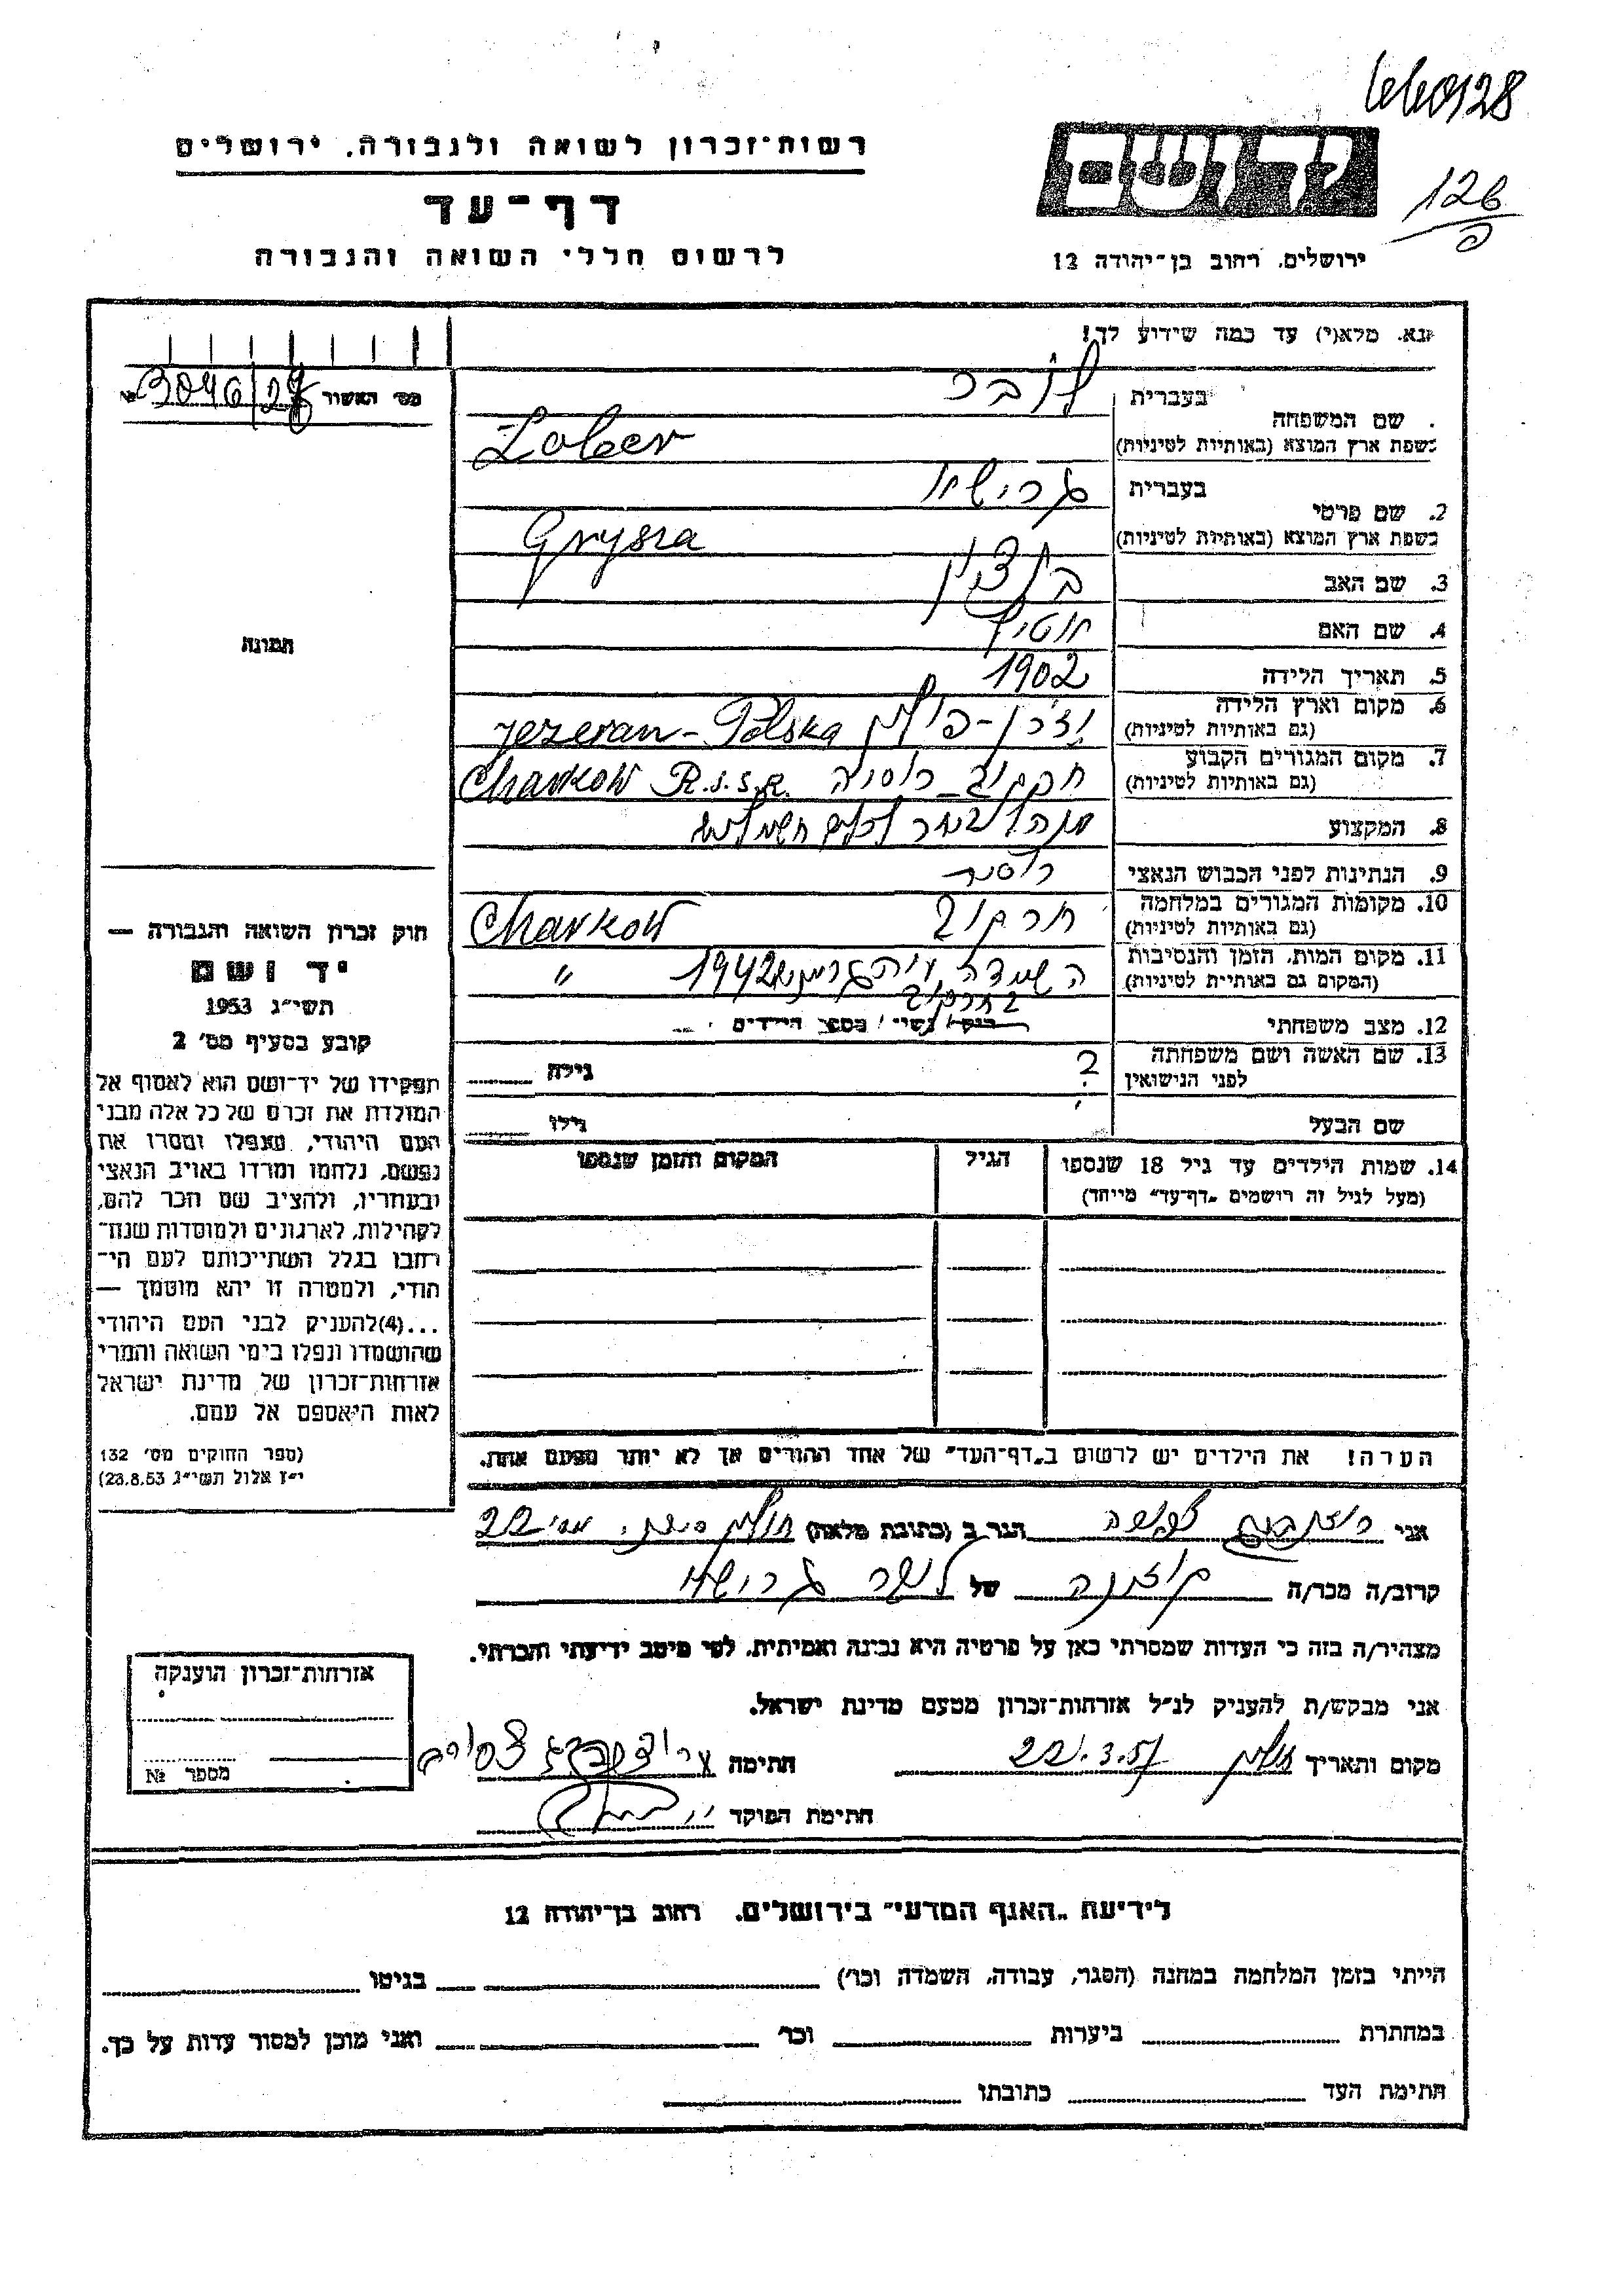 6609128
126
רשות-זכרון לשואה ולגבורה, ירושלים
דף-עד
לרשום חללי השואה והגבורה
יד ושם
ירושלים, רחוב בן-יהודה 12
נא. מלא(י) עד כמה שידוע לך!
מס' האשור
שם המשפחה
בעברית
לובר
בשפת ארץ המוצא (באותיות לטיניות)
Lober
2. שם פרטי
בעברית
גרישה
בשפת ארץ המוצא (באותיות לטיניות)
Grysza
3. שם האב
בן ציון
4. שם האם
5. תאריך הלידה
1902
6. מקום וארץ הלידה
(גם באותיות לטיניות)
פולין Jezeran - Polska
7. מקום המגורים הקבוע
(גם באותיות לטיניות)
חרקוב - רוסיה Charkow R.S.S.R.
8. המקצוע
9. הנתינות לפני הכבוש הנאצי
10. מקומות המגורים במלחמה
(גם באותיות לטיניות)
חרקוב Charkow
11. מקום המות, הזמן והנסיבות
(המקום גם באותיות לטיניות)
השמדה 1942 "
בחרקוב
12. מצב משפחתי
מספר הילדים
13. שם האשה ושם משפחתה
לפני הנישואין
? גילה
שם הבעל
גילו
14. שמות הילדים עד גיל 18 שנספו
(מעל לגיל זה רושמים "דף-עד" מייחד)
הגיל
המקום והזמן שנספו
הערה! את הילדים יש לרשום ב"דף-העד" של אחד ההורים אך לא יותר מפעם אחת.
תמונה
חוק זכרון השואה והגבורה —
יד ושם
תשי"ג 1953
קובע בסעיף מס' 2
תפקידו של יד-ושם הוא לאסוף אל
המולדת את זכרם של כל אלה מבני
העם היהודי, שנפלו ומסרו את
נפשם, נלחמו ומרדו באויב הנאצי
ובעוזריו, ולהציב שם וזכר להם,
לקהילות, לארגונים ולמוסדות שנח-
רבו בגלל השתייכותם לעם הי-
הודי, ולמטרה זו יהא מוסמך —
...(4)להעניק לבני העם היהודי
שהושמדו ונפלו בימי השואה והמרי
אזרחות-זכרון של מדינת ישראל
לאות היאספם אל עמם.
(ספר החוקים מס' 132
י"ז אלול תשי"ג 28.8.53)
אני
הגר ב (כתובת מלאה) חולון
קרוב/ה מכר/ה
של לובר גרישה
מצהיר/ה בזה כי העדות שמסרתי כאן על פרטיה היא נכונה ואמיתית, לפי מיטב ידיעתי והכרתי.
אני מבקש/ת להעניק לנ"ל אזרחות-זכרון מטעם מדינת ישראל.
מקום ותאריך חולון 22.3.57
חתימה
חתימת הפוקד
אזרחות-זכרון הוענקה
מספר №
לידיעת "האגף המדעי" בירושלים, רחוב בן-יהודה 12
הייתי בזמן המלחמה במחנה (הסגר, עבודה, השמדה וכו') בגיטו
במחתרת ביערות וכו' ואני מוכן למסור עדות על כך.
חתימת העד כתובתו